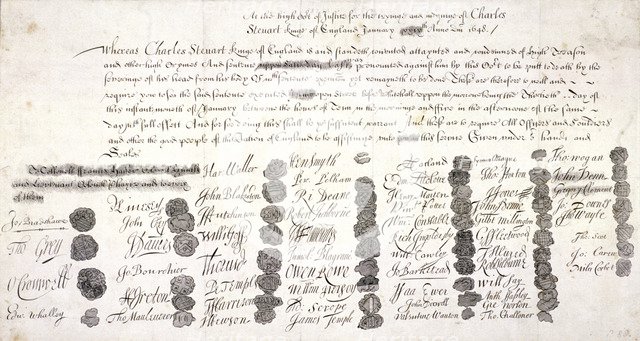 At the high Cot of Justice for the tryinge and iudginge of Charles
Steuart Kinge of England January xxixth Anno Dni 1648./
Whereas Charles Steuart Kinge of England is and standeth convicted attaynted and condemned of High Treason
and other high Crymes And sentence uppon Saturday last was pronounced against him by this Cot to be putt to death by the
severinge of his head from his body Of wch sentence execucon yet remayneth to be done These are therefore to will and
require you to see the said sentence executed In the open Streete before Whitehall uppon the morrowe being the Thirtieth day of
this instante moneth of January betweene the houres of Tenn in the morninge and Five in the afternoone of the same
day wth full effect And for soe doing this shall be your sufficient warrant And these are to require All Officers and Souldiers
and other the good people of this Nation of England to be assistinge unto you in this service Given under our hands and
Seales
To Collonell Francis Hacker Colonell Huncks
and Lieutenant Colonell Phayre and to every
of them
Jo Bradshawe
Tho Grey
O Cromwell
Edw Whalley
M Livesey
John Okey
J Danvers
Jo Bourchier
H Ireton
Tho Mauleverer
Har Waller
John Blakiston
J Hutchinson
Willi Goff
Tho Pride
P Temple
T Harrison
J Hewson
Hen Smyth
Per Pelham
Ri Deane
Robert Tichborne
H Edwardes
Daniel Blagrave
Owen Rowe
William Purefoy
Ad Scrope
James Temple
A Garland
Edm Ludlowe
Henry Marten
Vinct Potter
Wm Constable
Rich Ingoldesby
Will Cawley
Jo Barkstead
Isaa Ewer
John Dixwell
Valentine Wauton
Symon Mayne
Tho Horton
J Jones
John Moore
Gilbt Millington
G Fleetwood
J Alured
Robt Lilburne
Will Say
Anth Stapley
Gre Norton
Tho Challoner
Tho Wogan
John Venn
Gregory Clement
Jo Downes
Tho Wayte
Tho Scot
Jo Carew
Miles Corbet